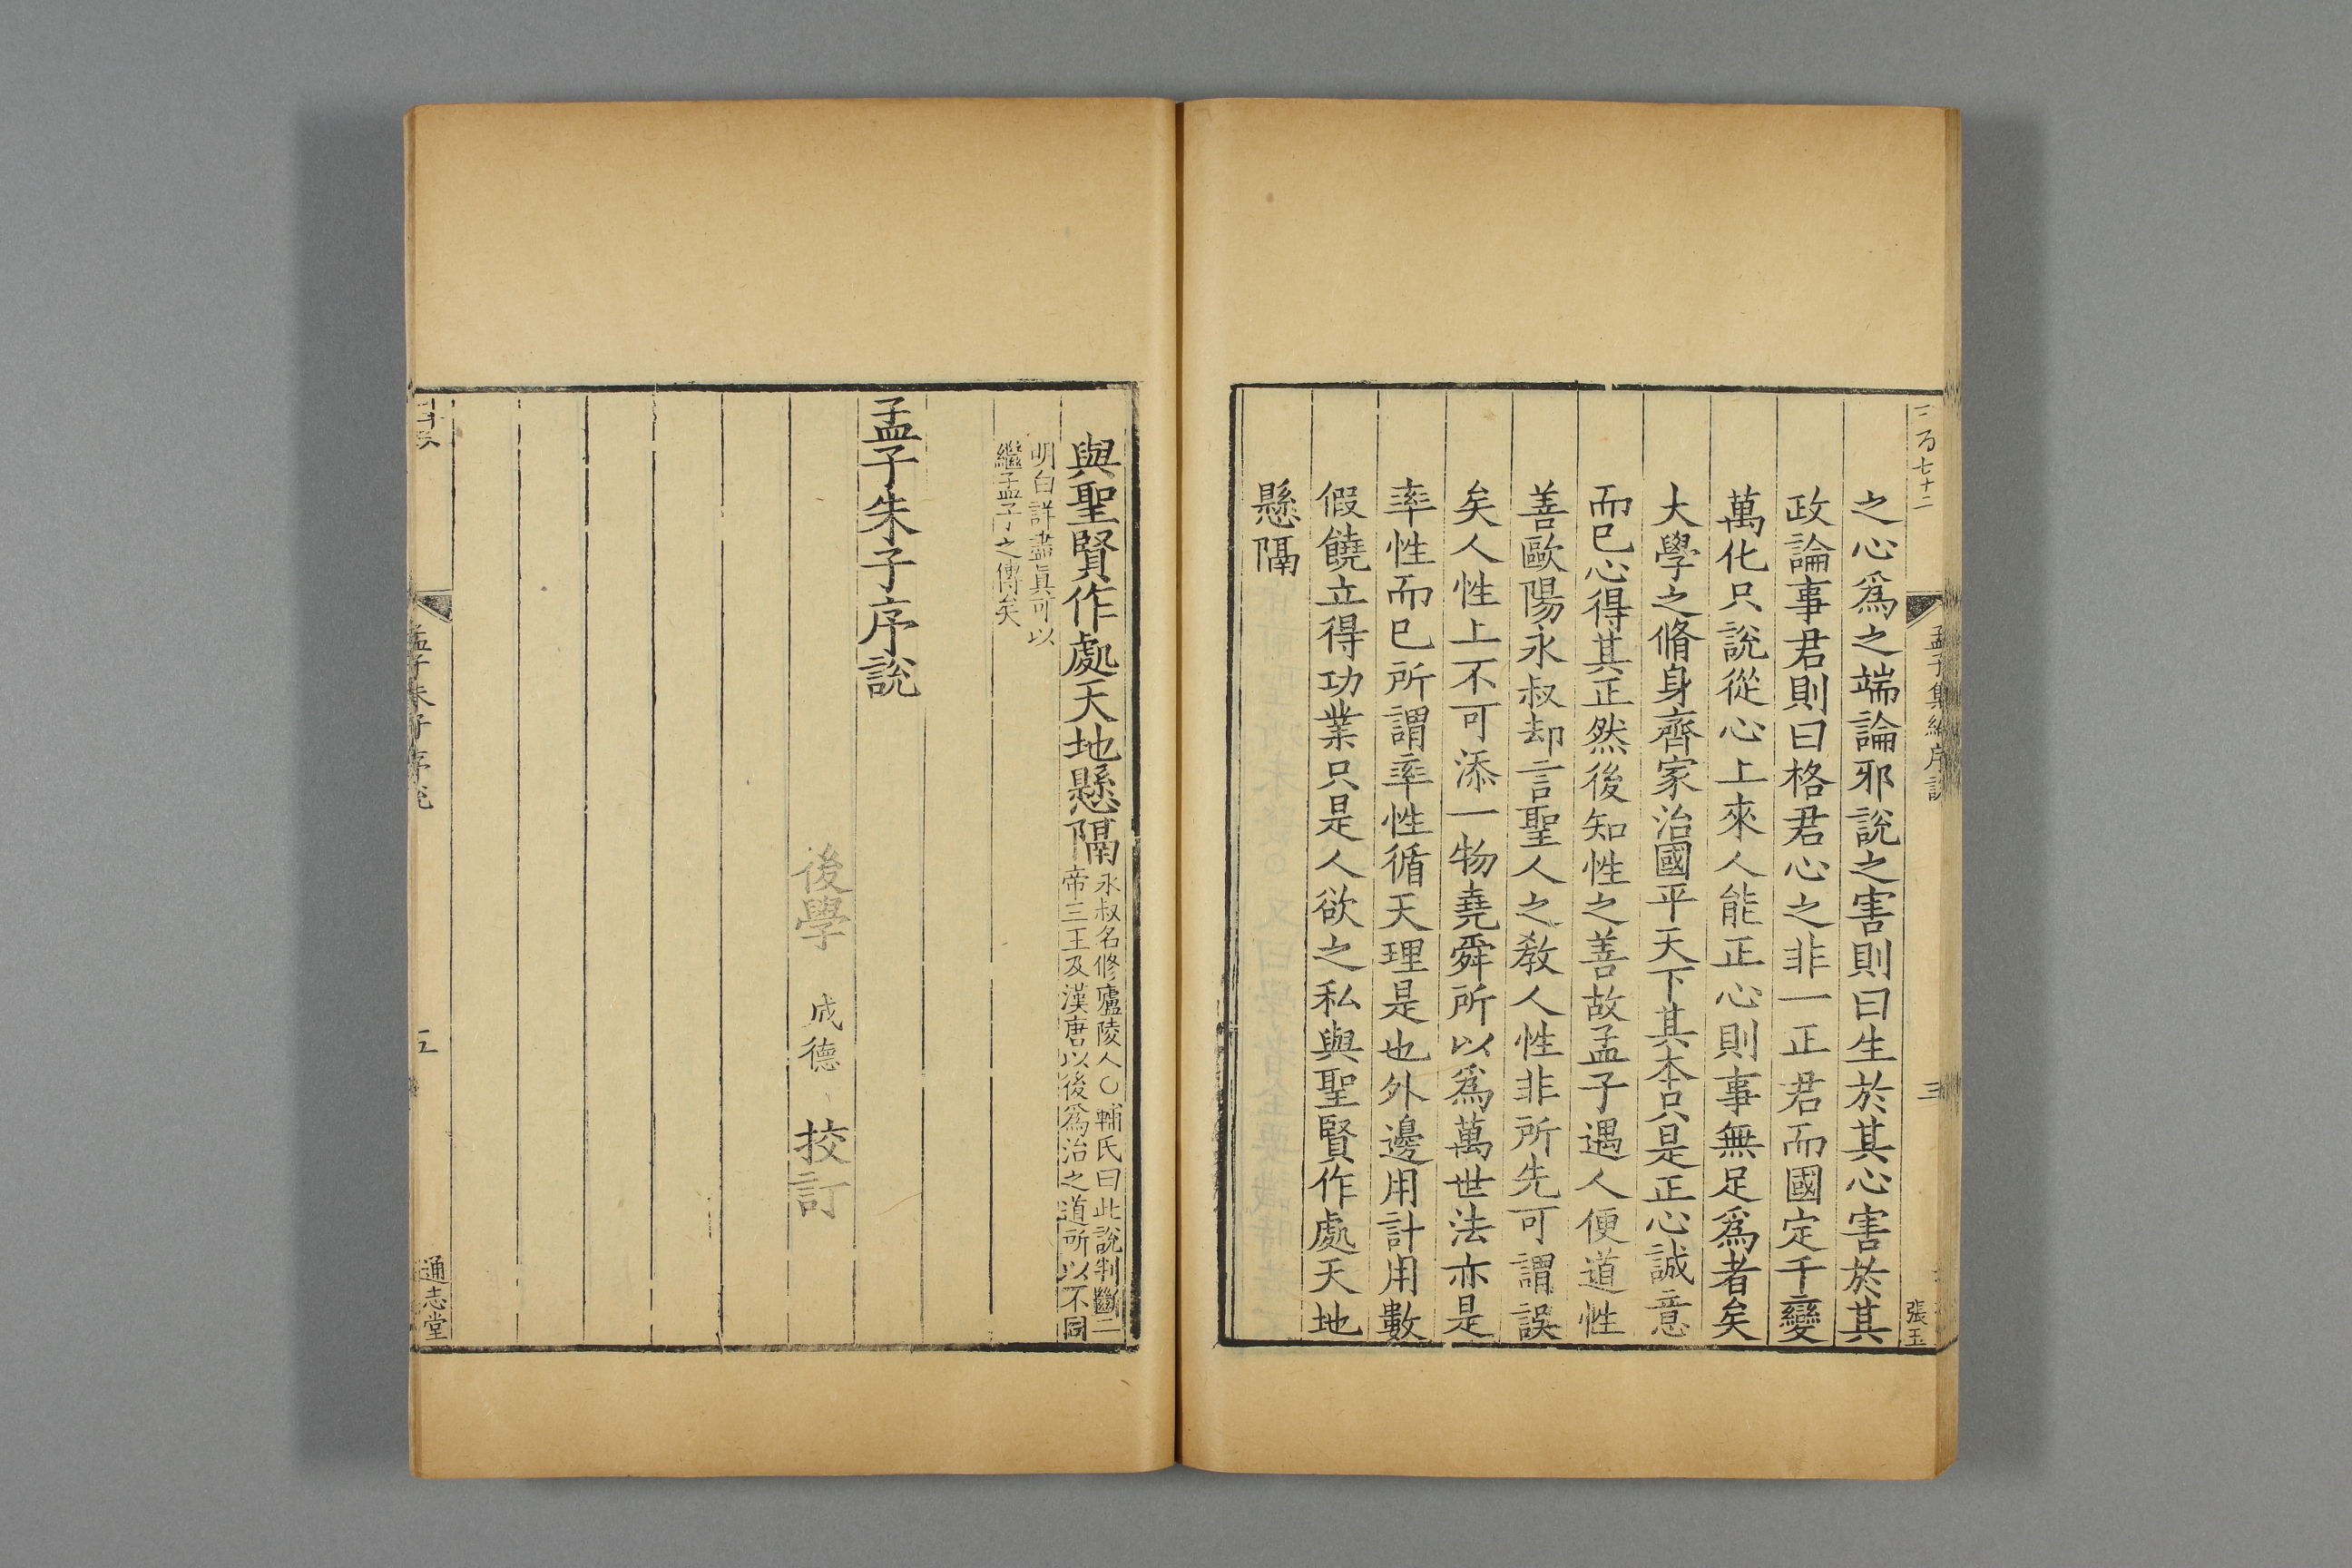 三百七十二
孟子集編序説
三
張玉
之心爲之端論邪説之害則曰生於其心害於其
政論事君則曰格君心之非一正君而國定千變
萬化只説從心上來人能正心則事無足爲者矣
大學之脩身齊家治國平天下其本只是正心誠意
而已心得其正然後知性之善故孟子遇人便道性
善歐陽永叔却言聖人之教人性非所先可謂誤
矣人性上不可添一物堯舜所以爲萬世法亦是
率性而已所謂率性循天理是也外邊用計用數
假饒立得功業只是人欲之私與聖賢作處天地
懸隔
與聖賢作處天地懸隔
永叔名修廬陵人○輔氏曰此説判斷二
帝三王及漢唐以後爲治之道所以不同
明白詳盡眞可以
繼孟子之傳矣
孟子朱子序説
後學 成德 挍訂
孟子朱子序説
五
通志堂